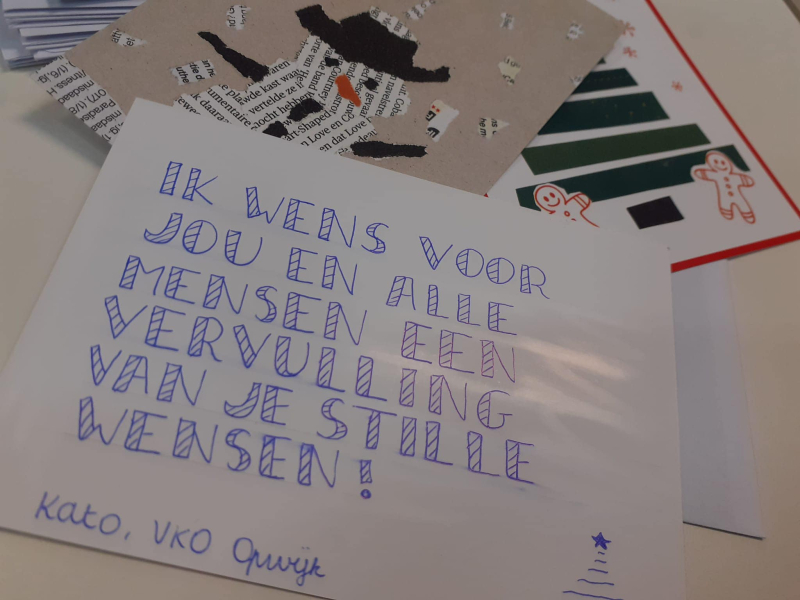 IK WENS VOOR
JOU EN ALLE
MENSEN EEN
VERVULLING
VAN JE STILLE
WENSEN!
Kato, VKO Opwijk